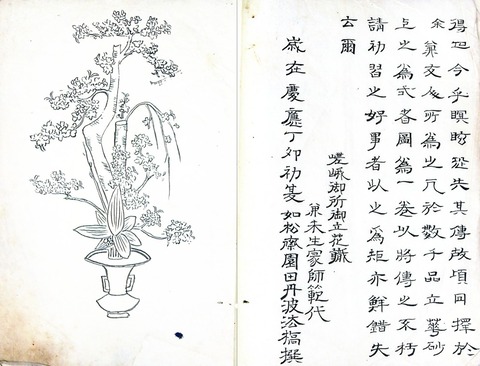 得四今乎瞑眩恐失其傳故頃日擇於
余篋交及所為之凡於數千品立華砂
之之為式者圖為一卷以將傳之不朽
請初習之好事者以之為矩亦鮮錯失
云爾
嵯峨御所御立花職
兼未生家師範代
歲在慶應丁卯初夏如松齋園田丹波法橋撰